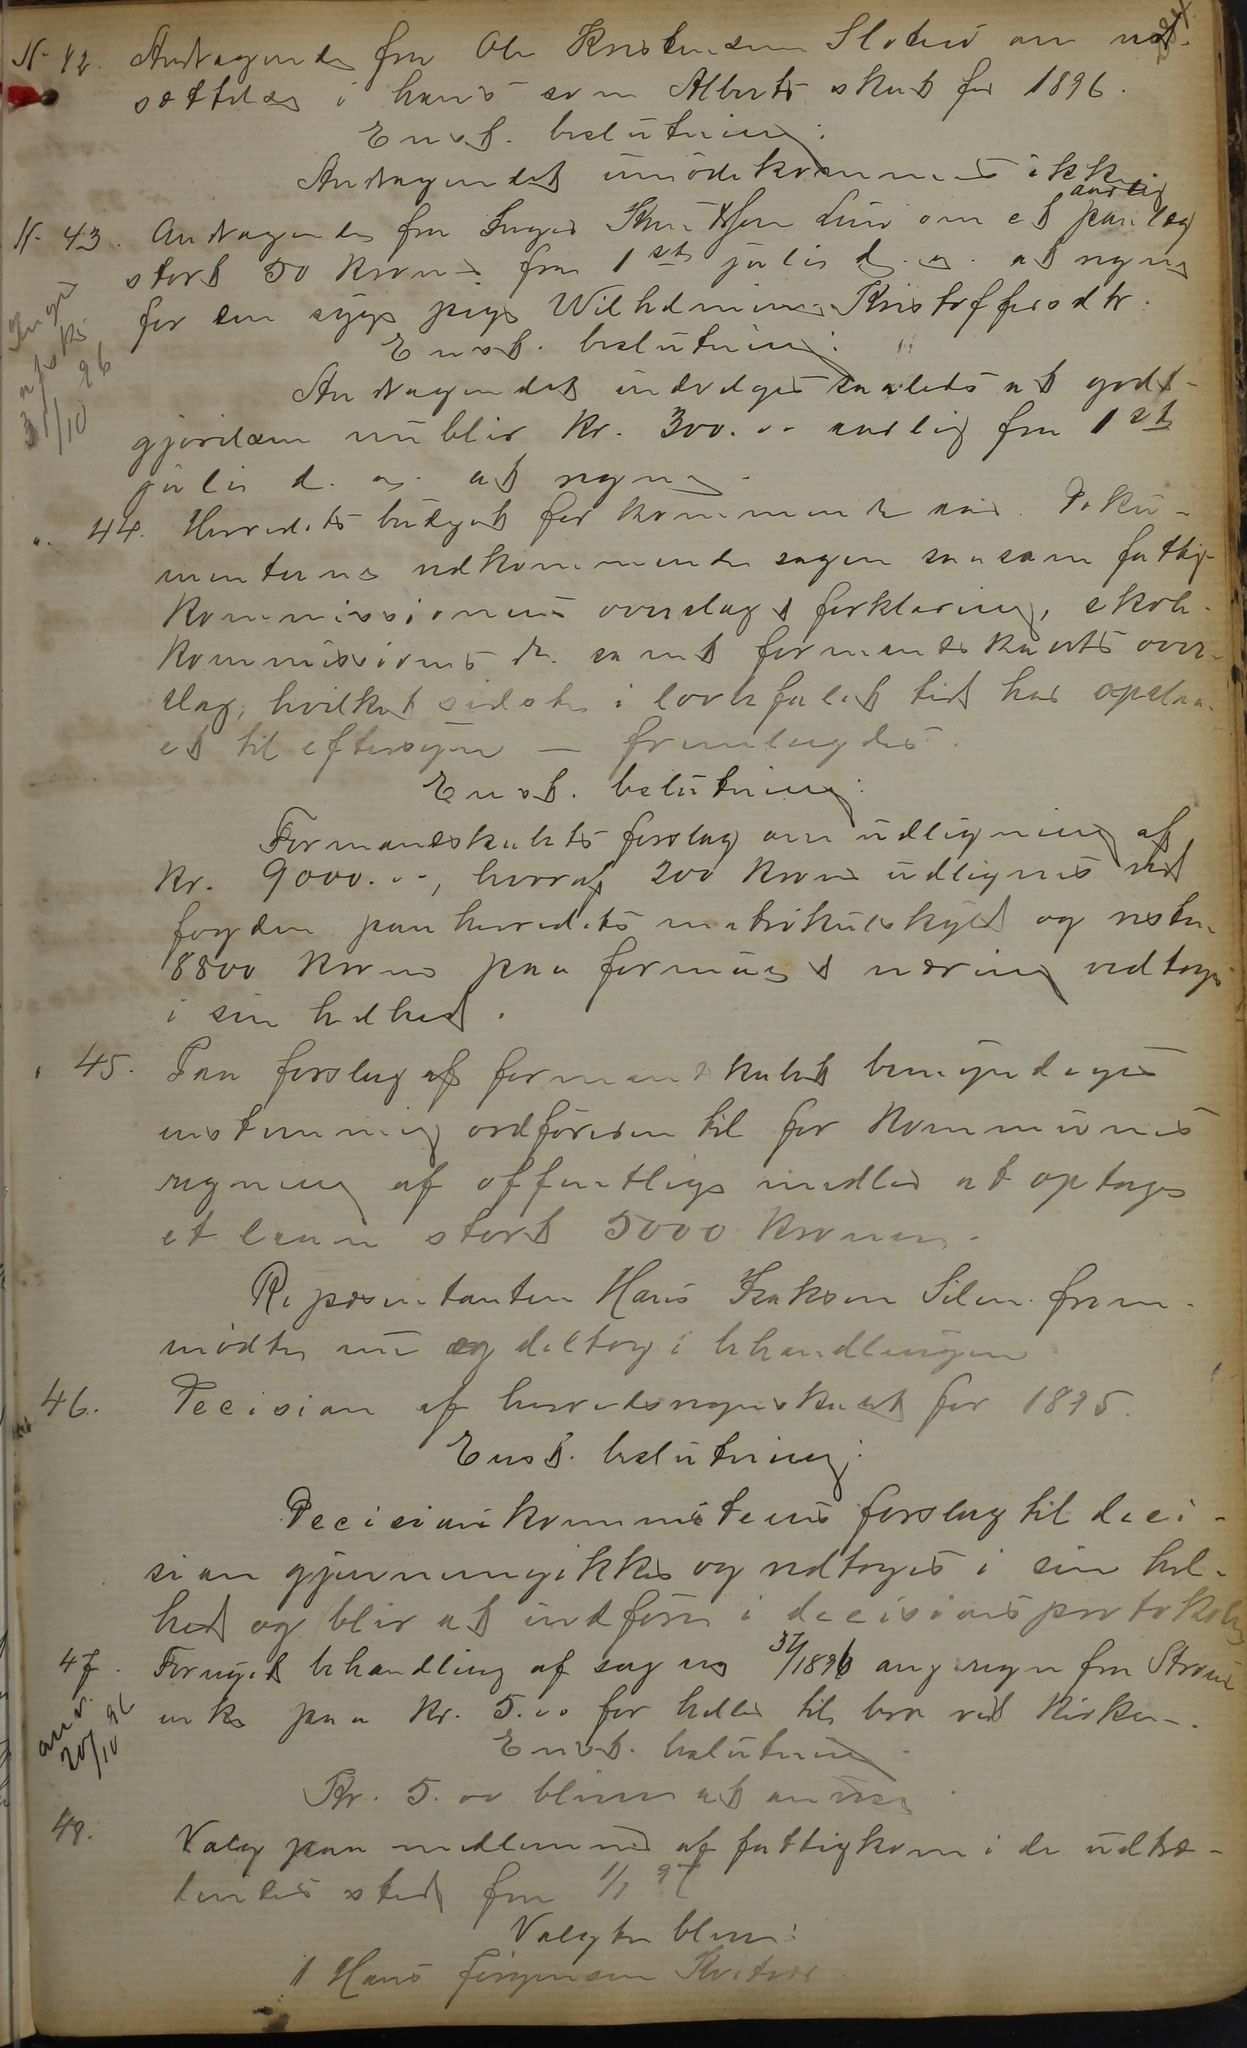 N. 42. Andragende fra Ole Kristensen Slotvi om ned-
sættelse i hans søn Alberts skat for 1896.
Enst. beslutning:
Andragendet imødekommes ikke
aarlig
N. 43. Andragende fra Inger Lund om et paalæg
stort 50 kroner fra 1ste juli d. a. at regne
for sin syge pige Wilhelmine Kristoffersdtr.
Enst. beslutning:
31/10 96
Andragendet indvilges saaledes at godt-
gjørelsen nu blir Kr. 300.00 aarlig fra 1ste
juli d. a. at regne.
" 44. Herredets budget for kommende aar. Doku-
menterne vedkommende sagen saasom fattig-
kommissionens overslag & forklaring, skole-
kommissionens do. samt formandskabets over-
slag, hvilket sidste i lovbefalet tid har opslaa-
et til eftersyn — fremlagdes.
Enst. beslutning:
Formandskabets forslag om udligning af
Kr. 9000.00, hvoraf 200 kroner udlignes ved
fogden paa herredets matrikulskyld og resten
8800 kroner paa formue & næring vedtages
i sin helhed.
" 45. Paa forslag af formandskabet bemyndiges
enstemmig ordføreren til for kommunens
regning af offentlige midler at optage
et laan stort 5000 kroner.
Repræsentanten Hans Isaksen Silen frem-
mødte nu og deltog i behandlingen.
46. Decision af herredsregnskabet for 1895.
Enst. beslutning:
Decisionskommiteens forslag til deci-
sion gjennemgikkes og vedtoges i sin hel-
hed og blir at indføre i decisionsprotokollen
47. Fornyet behandling af sag no 37/1896 ang. regn. fra Strøm
enke paa Kr. 5.00 for heller til bro ved kirken.
anv. 20/10 96
Enst. beslutning
Kr. 5.00 bliver at anvise
48. Valg paa medlemmer af fattigkom. i de udtræ-
dendes sted fra 1/1 97
Valgte blev:
1 Hans Jørgensen